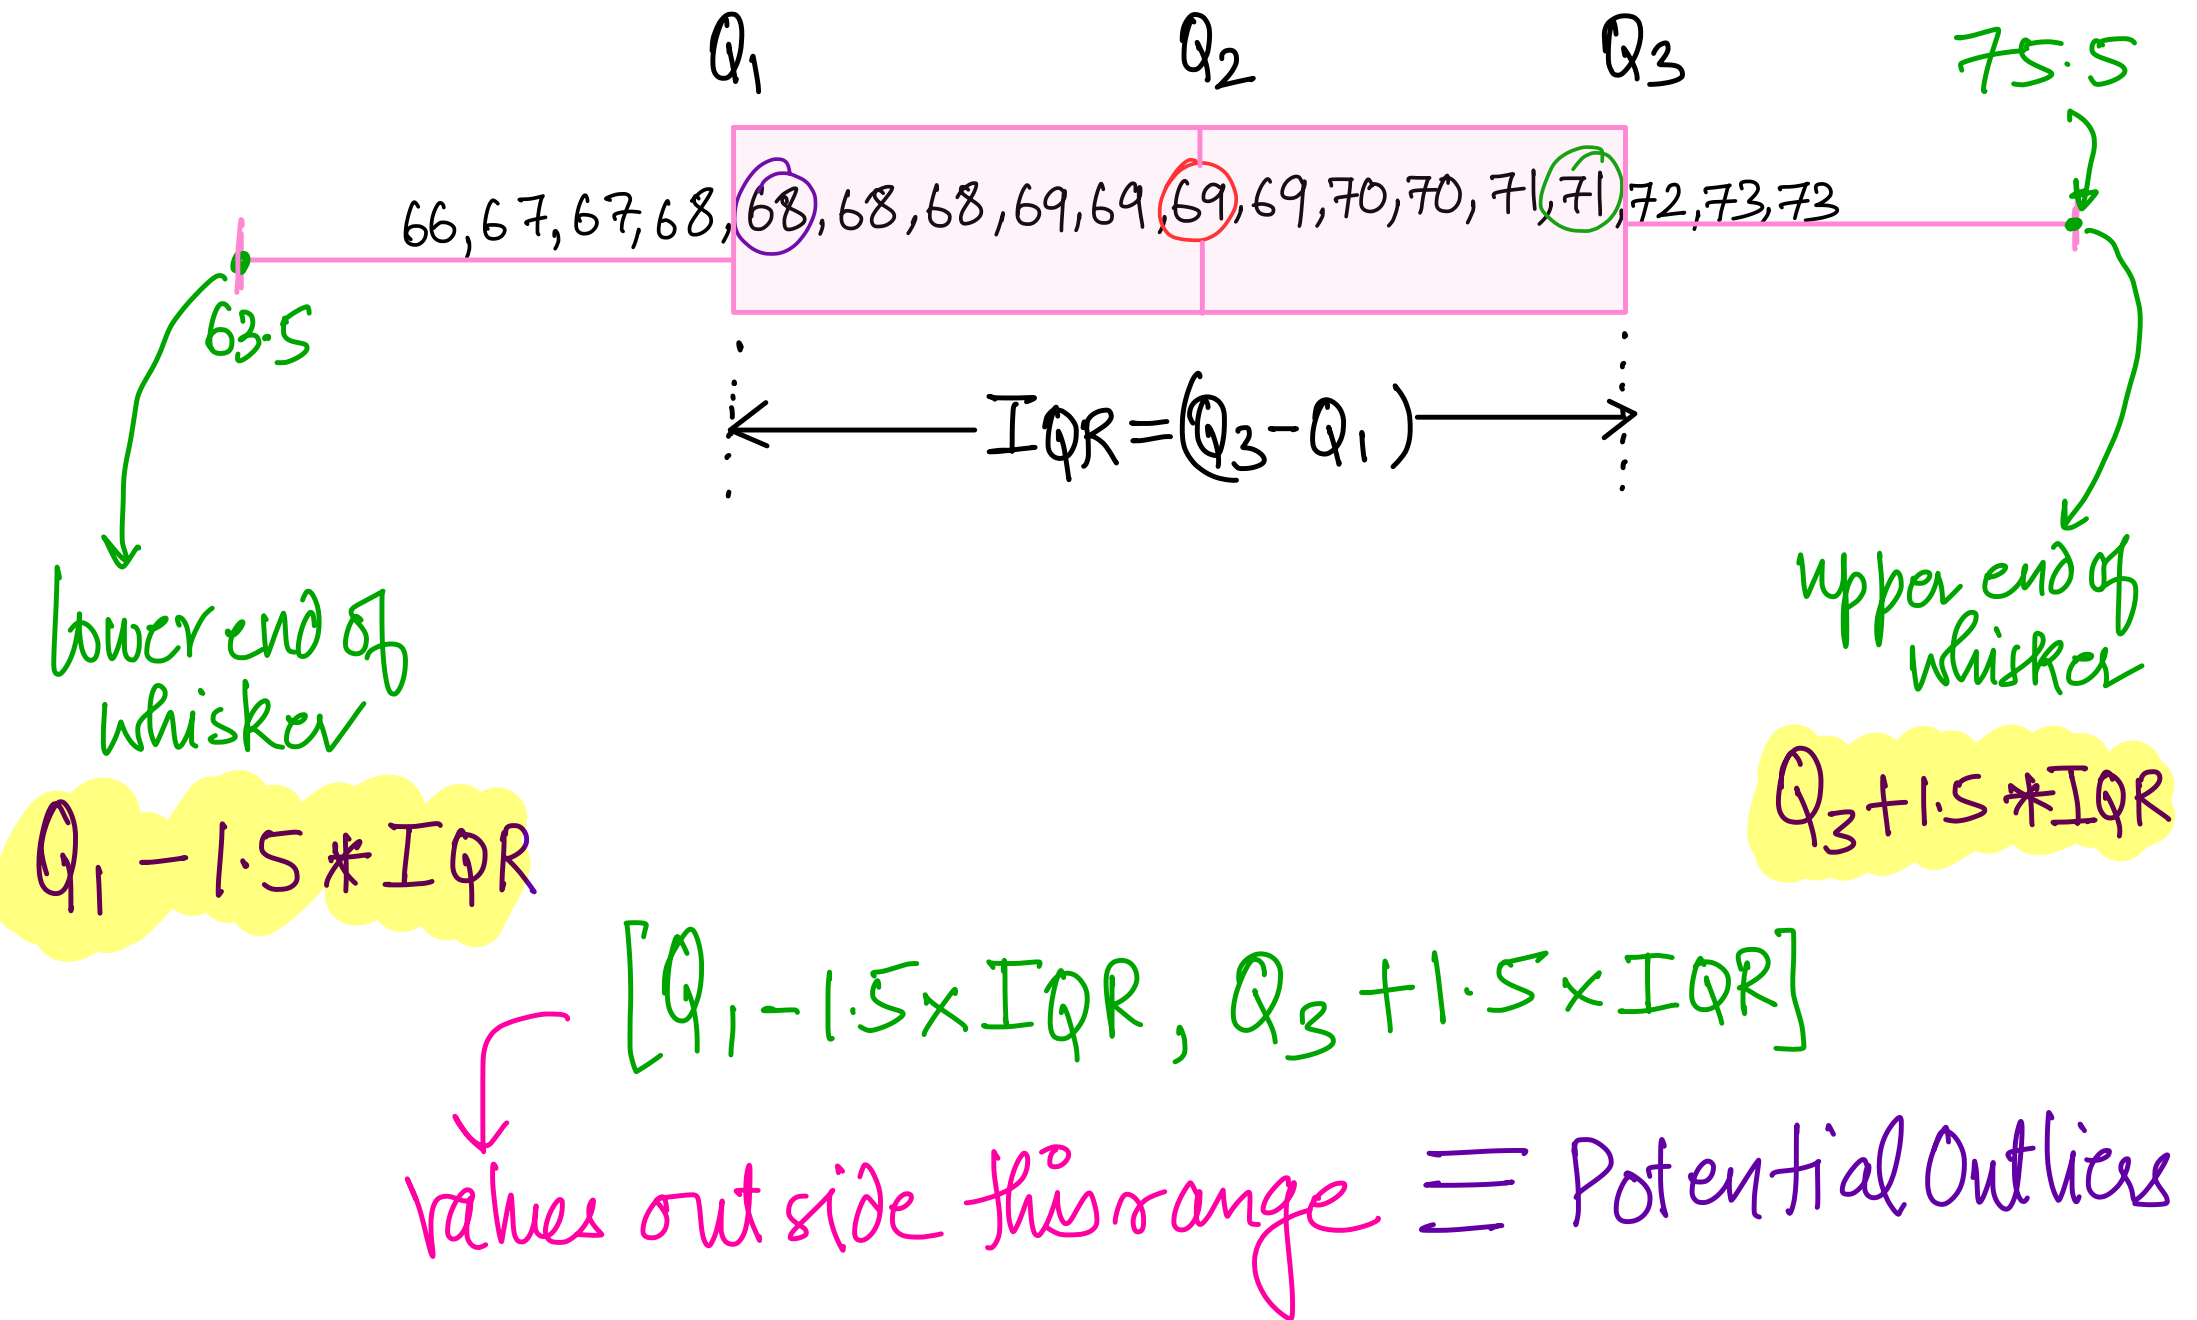 Q1 Q2 Q3 75.5
66, 67, 67, 68, 68, 68, 68, 69, 69, 69, 69, 70, 70, 71, 71, 72, 73, 73
63.5
IQR = (Q3 - Q1)
lower end of
whisker
Q1 - 1.5 * IQR
upper end of
whisker
Q3 + 1.5 * IQR
[Q1 - 1.5 x IQR, Q3 + 1.5 x IQR]
values outside this range ≡ Potential Outliers